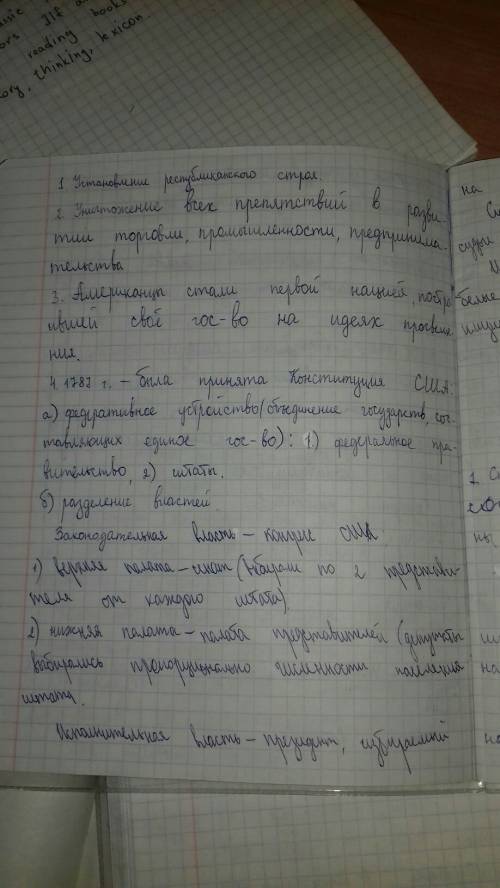 usic
ors Ilf a
reading books
ory, thinking, lexicon.
1 Установление республиканского строя.
2. Уничтожение всех препятствий в разви-
тии торговли, промышленности, предпринима-
тельства
3. Американцы стали первой нацией, постро
ившей своё гос-во на идеях просвеще
ния.
4. 1787 г. – была принята Конституция США:
а) федеративное устройство(объединение государств, сос-
тавляющих единое гос-во): 1) федеральное пра-
вительство, 2) штаты.
б) разделение властей.
Законодательная власть – конгресс США
1) верхняя палата – сенат (выбирали по 2 представи-
теля от каждого штата)
2) нижняя палата – палата представителей (депутаты
выбирались пропорционально численности населения
штата.
Исполнительная власть – президент, избираемый
на
судьи
белые
1. С
ны
на